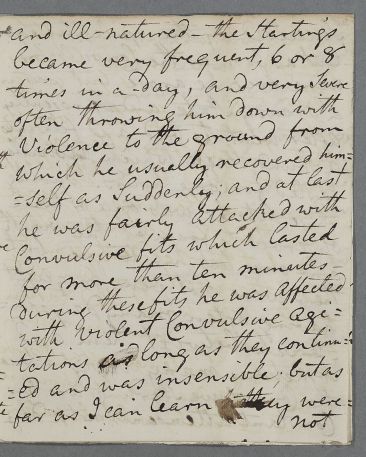 and ill-natured - the Startings
became very frequent, 6 or 8
times in a-day, and very Severe
often throwing him down with
Violence to the ground from
which he usually recovered him=
=self as Suddenly; and at last
he was fairly attacked with
Convulsive fits which lasted
for more than ten minutes -
During these fits he was affected
with violent Convulsive agi=
tations as long as they continu=
=ed and was insensible, but as
far as I can learn they were=
not